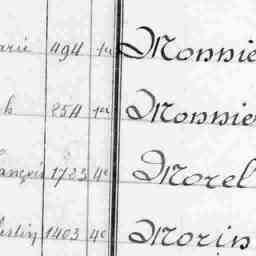 arie 494 1re Monnie
h 254 1re Monnie
ançois 1723 4e Morel
lestin 1403 4e Morin